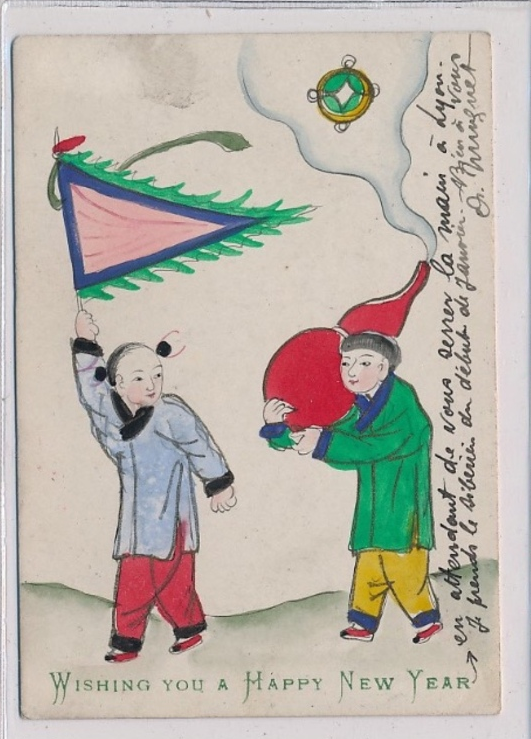 WISHING YOU A HAPPY NEW YEAR
en attendant de vous serrer la main à Lyon.
Je prends le sibérien du début de Janvier - Bien à vous